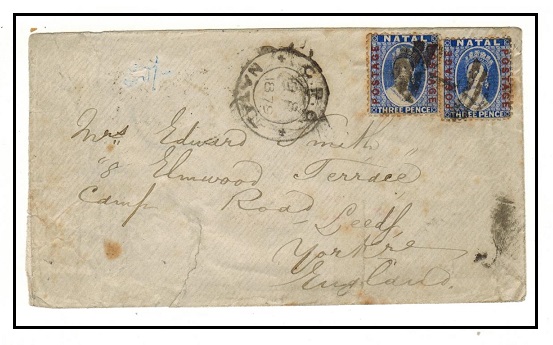 NATAL
POSTAGE
THREE PENCE
NATAL
POSTAGE
THREE PENCE
G.P.O.
1879
NATAL
Mrs Edward Smith
"8 Elmwood Terrace
Camp Road Leeds
Yorkre
England